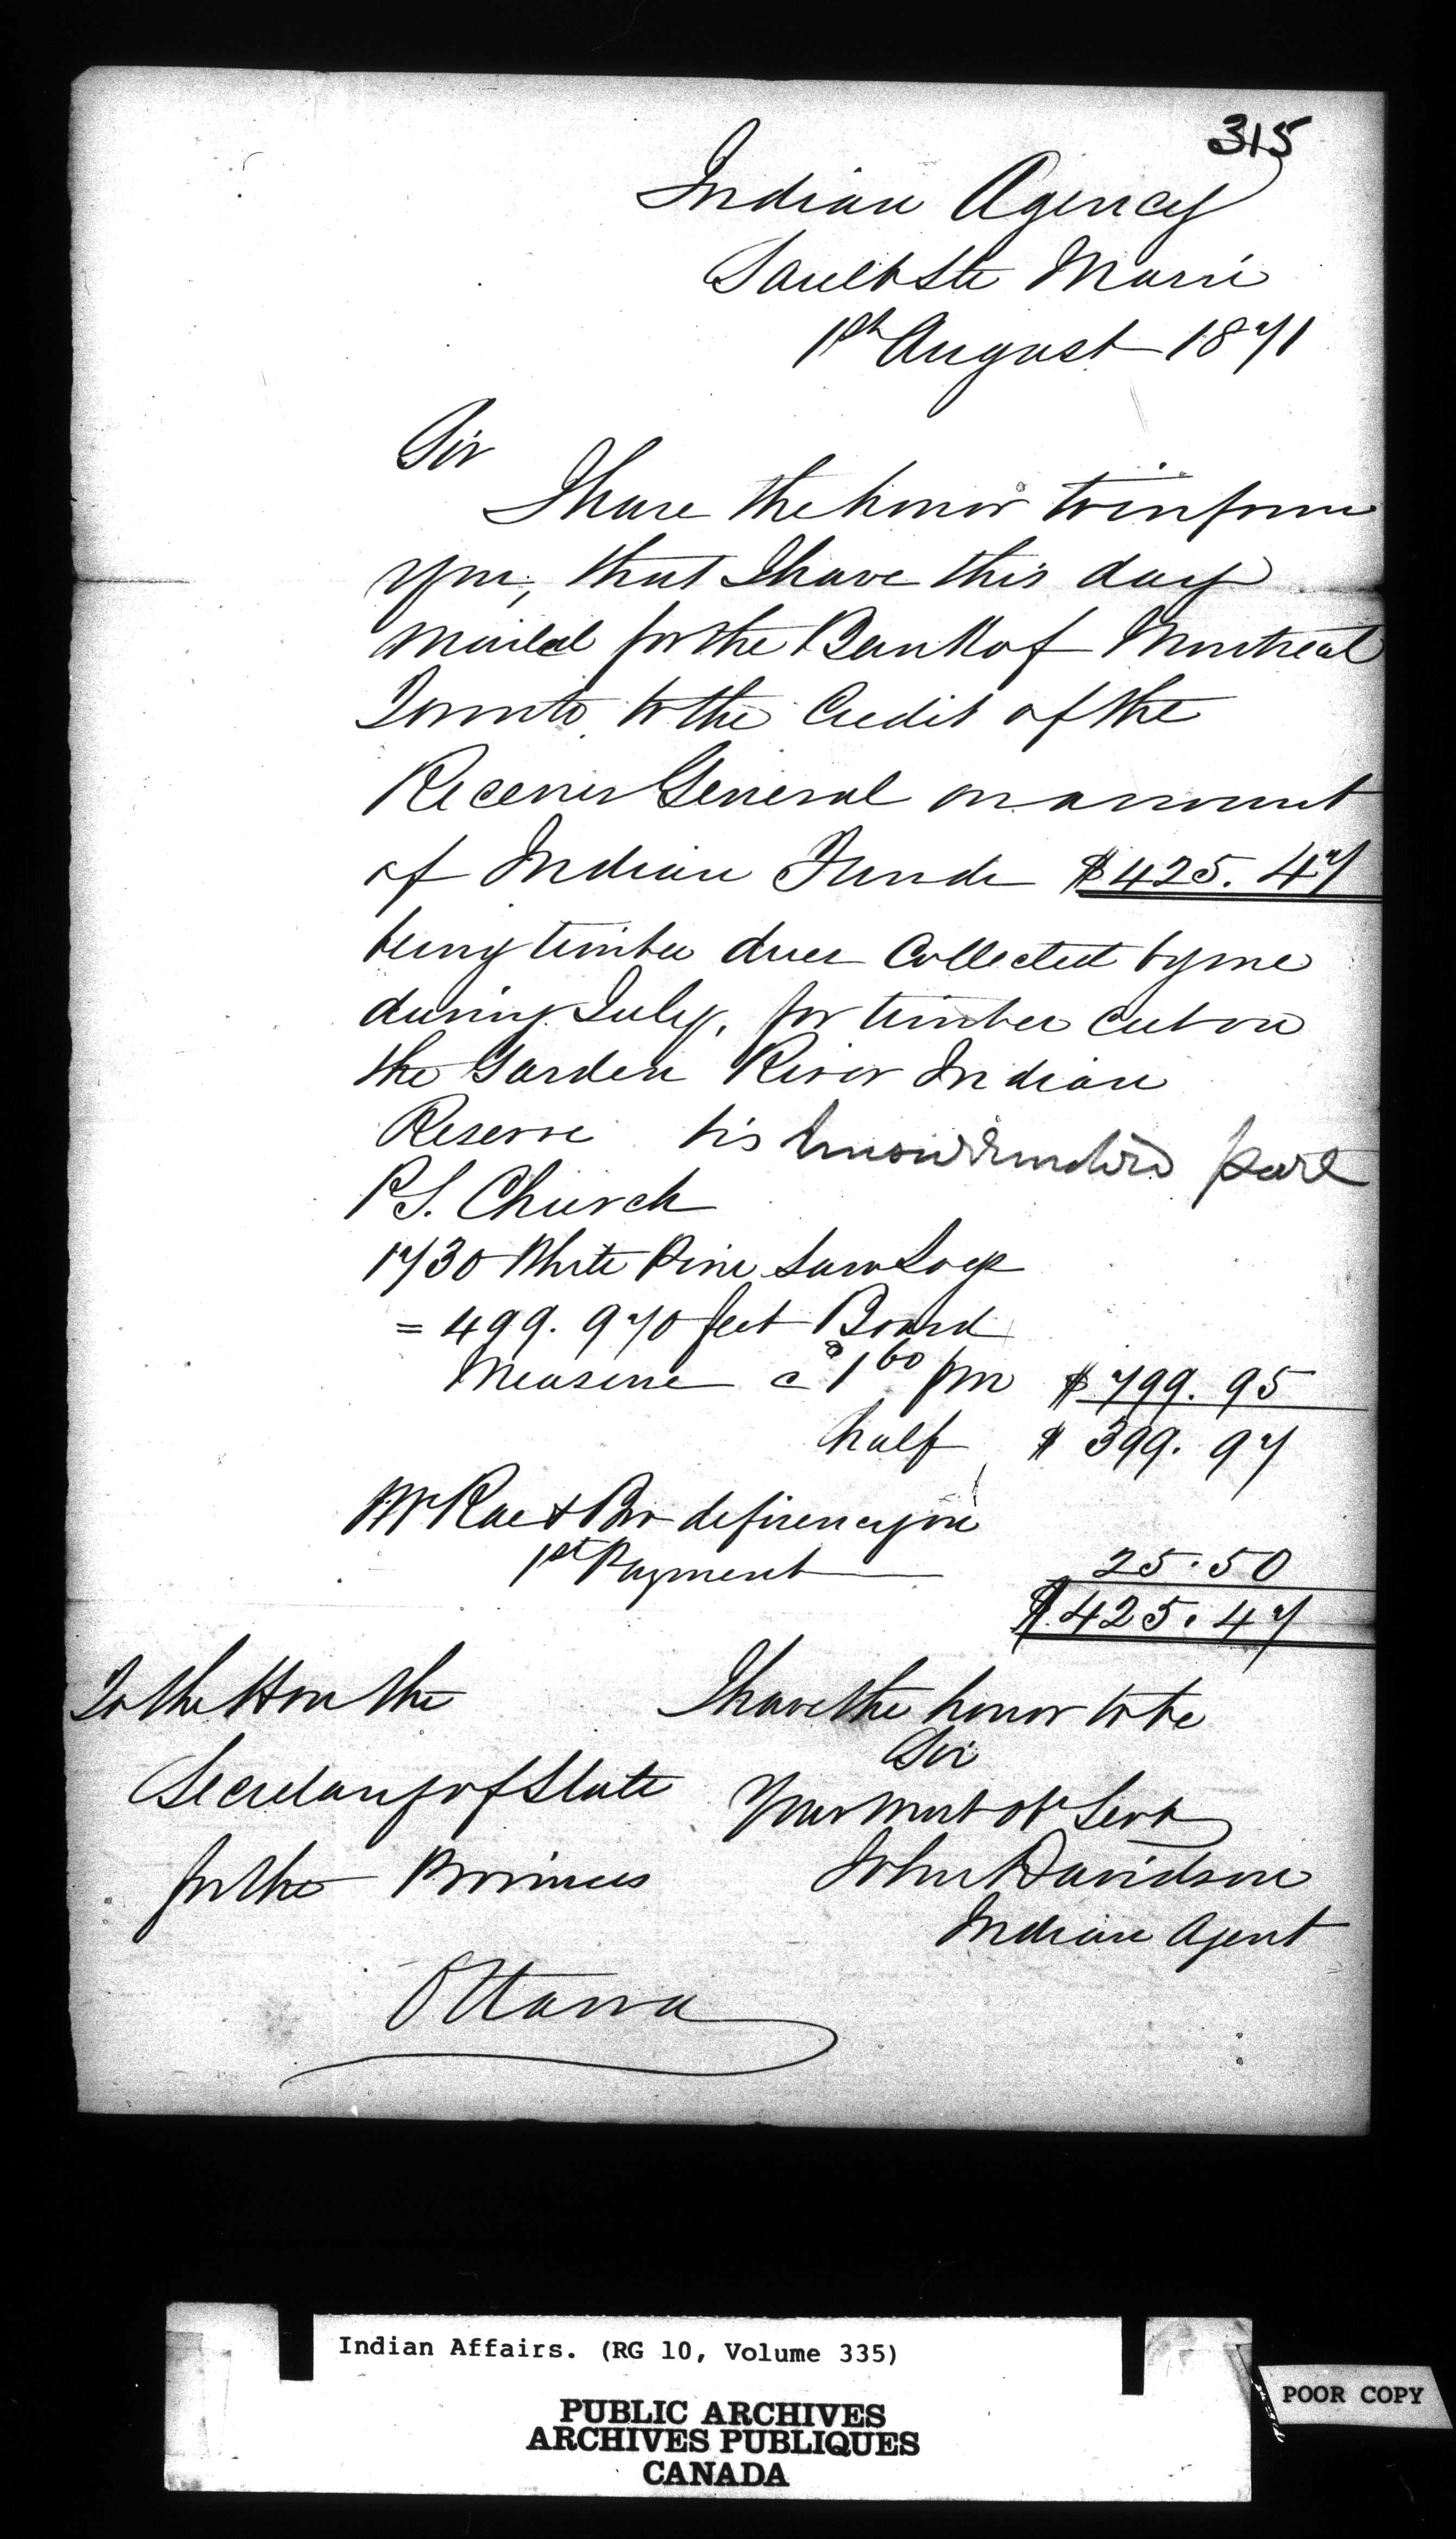 315
Indian Agency
Sault Ste Marie
1st August 1871
Sir
I have the honor to inform
you, that I have this day
mailed for the Bank of Montreal
Toronto to the Credit of the
Receiver General on account
of Indian Funds $425.47
being timber dues Collected by me
during July, for timber cut on
the Garden River Indian
Reserve his part
P.S. Church
1730 White Pine Saw Logs
= 499.970 feet Board
Measure @ 1 60 pm $799.95
half $399.97
McRae & Bro deficiency on
1st Payment 25.50
$425.47
To the Hon the
Secretary of State
for the Provinces
Ottawa
I have the honor to be
Sir
Your most ob Servt
John Davidson
Indian Agent
Indian Affairs. (RG 10, Volume 335)
PUBLIC ARCHIVES
ARCHIVES PUBLIQUES
CANADA
POOR COPY